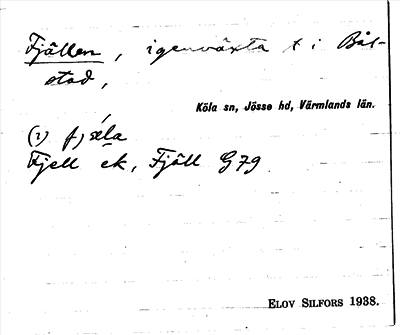 Fjällen, igenväxta t i Bål-
stad,
Köla sn, Jösse hd, Värmlands län.
(i) fjæ´la
Fjell ek, Fjäll G79
ELOV SILFORS 1938.